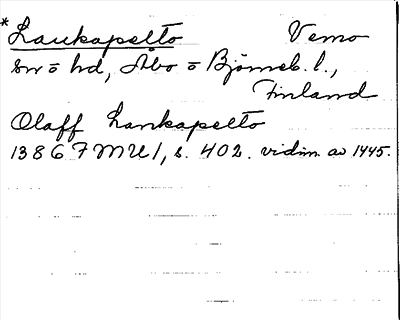 * Laukapelto Vemo
sn o hd, Åbo o Björneb. l.,
Finland
Olaff Lankapelto
1386 FMU1, s. 402. vidim. av 1445.